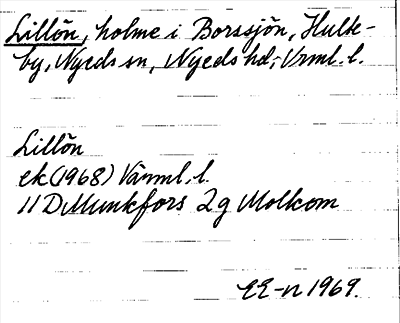 Lillön, holme i Borssjön, Hult-
by, Nyeds sn, Nyeds hd, Vrml. l.
Lillön
ek (1968) Värml. l.
11 D Munkfors 2g Molkom
EE-n 1969.